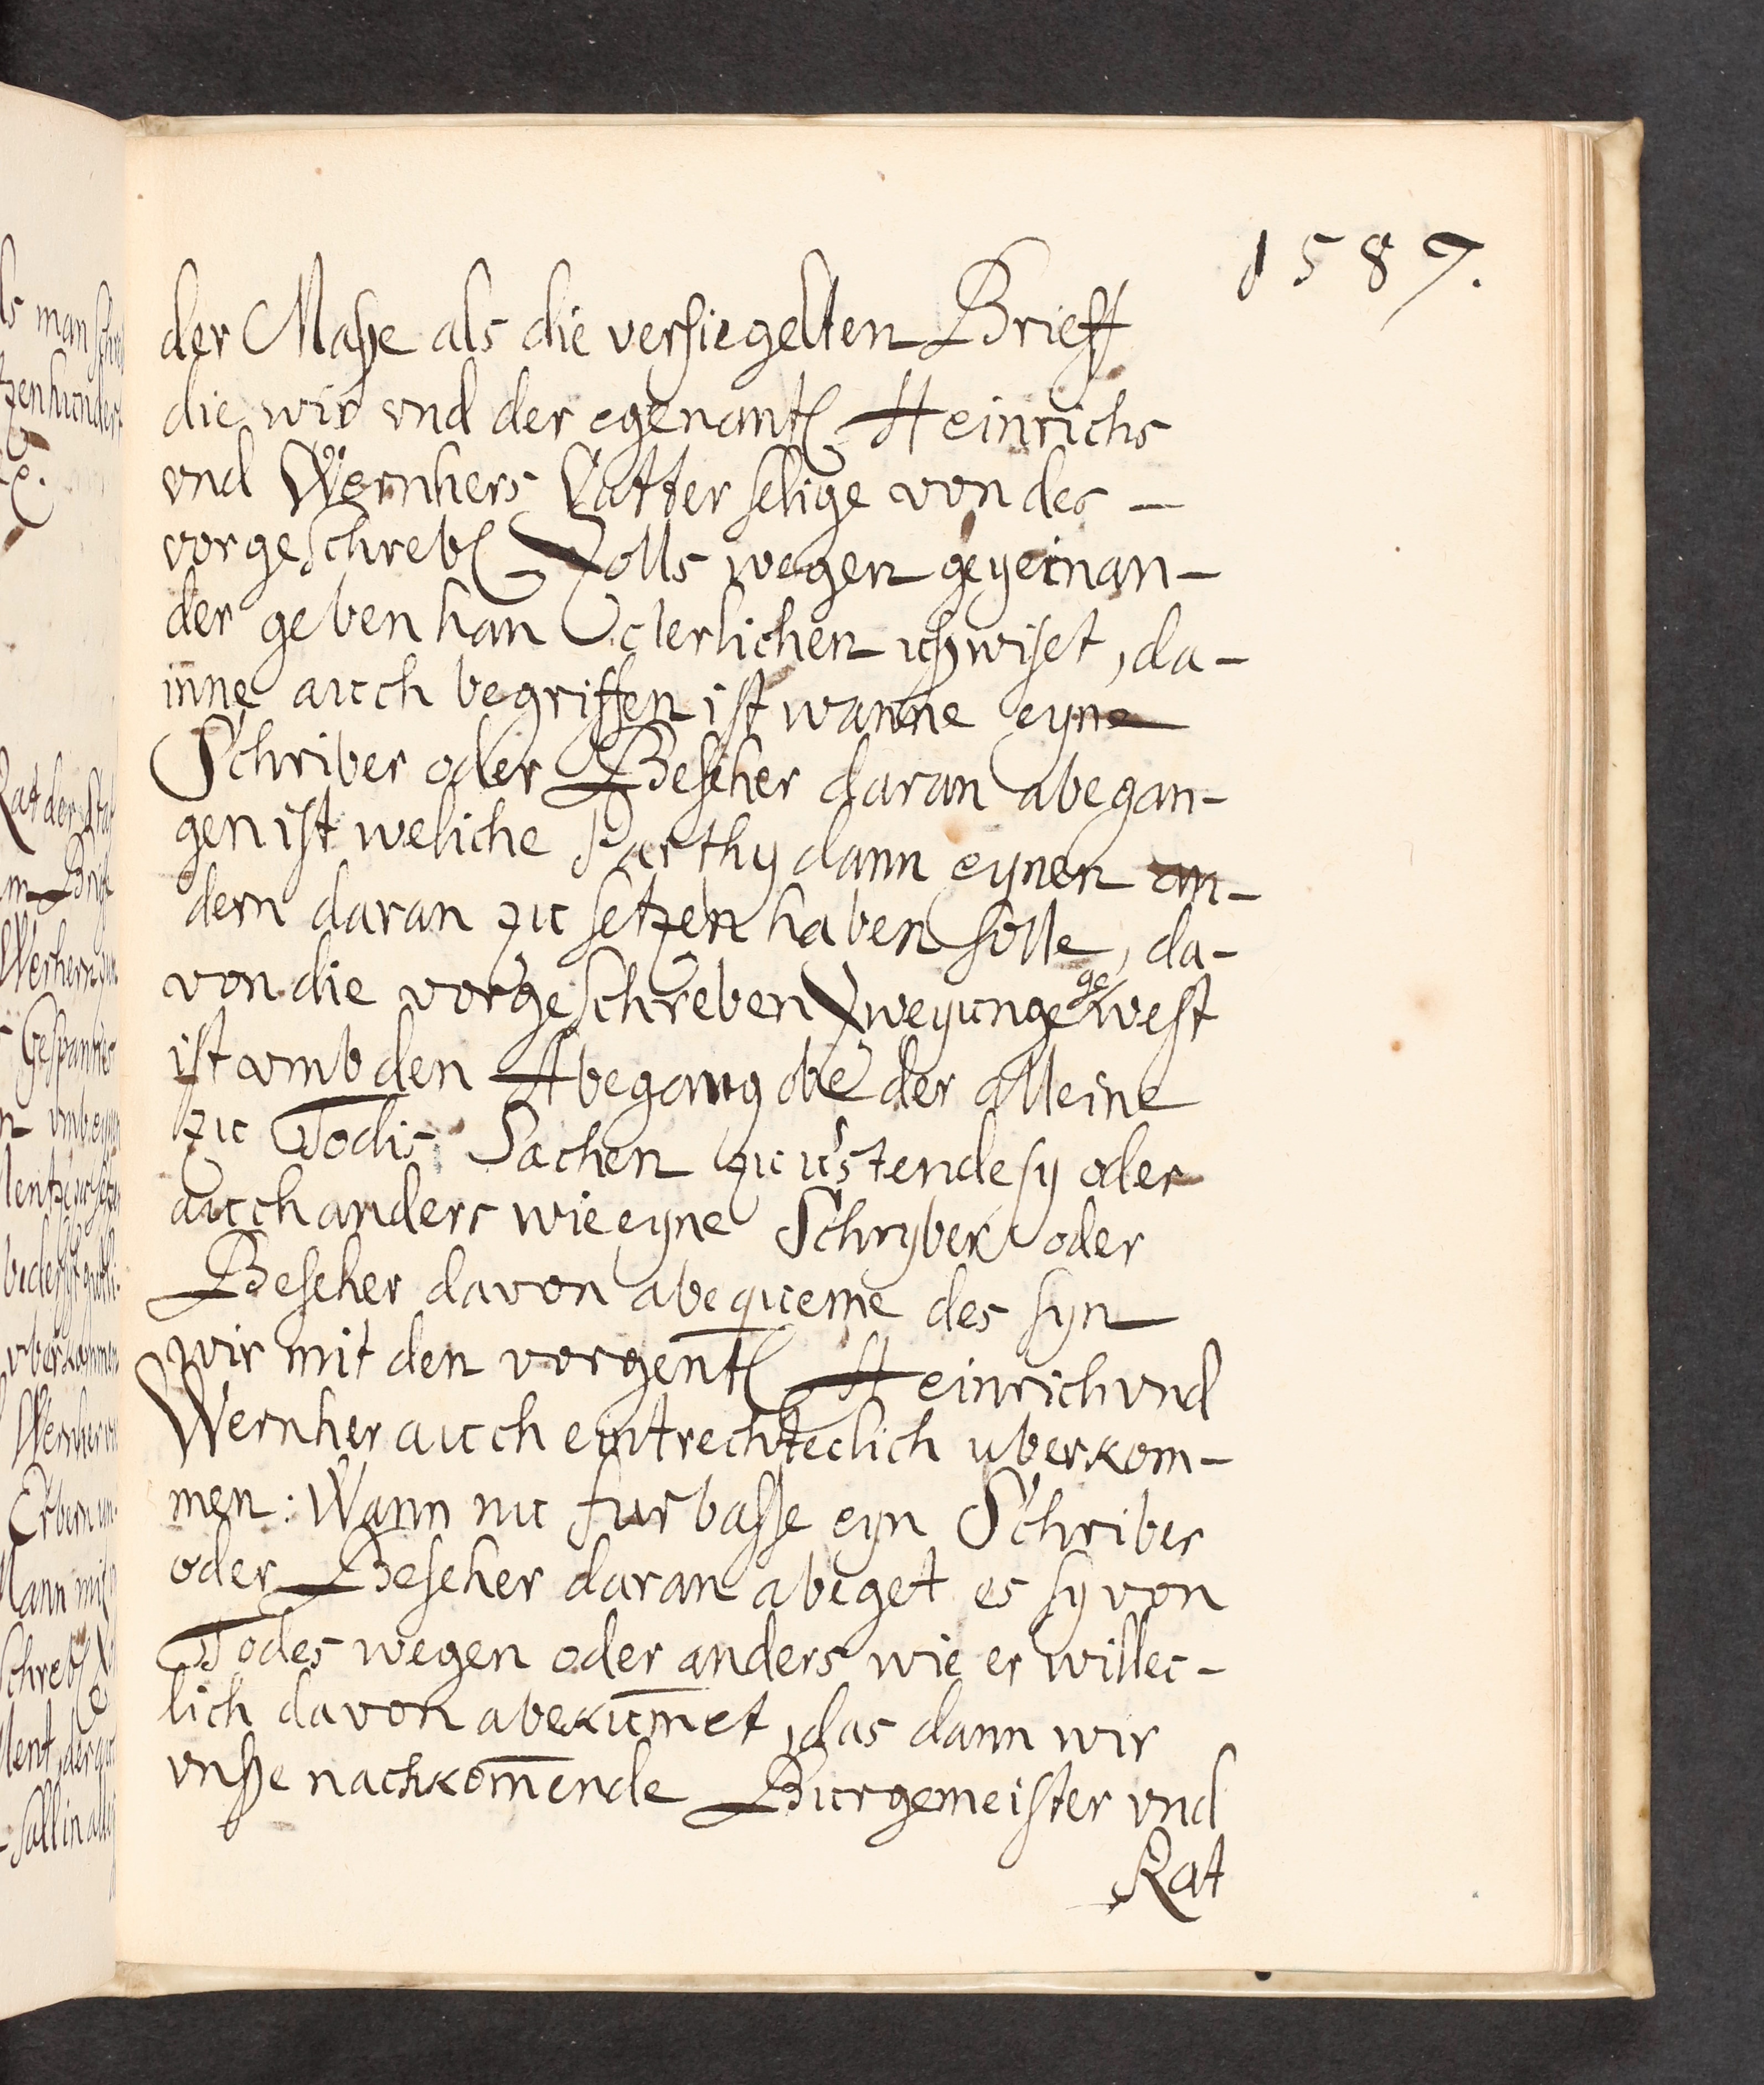 1587.
der Maße als die versiegelten Brieff
die wir vnd der egenant Heinrichs
vnd Wernhers Vatter selige von des -
vorgeschreb Zolls wegen geyeinan-
der geben han Clerlichen ußwiset, da-
inne auch begriffen ist wanne eyne
Schriber oder Beseher daran abegan-
gen ist weliche Parthy dann eynen an-
dern daran zu setzen haben solle, da-
von die vorgeschreben Zweyunge gewest
ist vmb den Abegang obe der alleine
zu Todis Sachen zuustende sy oder
auch anders wie eyne Schryber oder
Beseher davon abequeme des syn
wir mit den vorgent Heinrich vnd
Wernher auch eintrechteclich uberkom-
men: Wann nu furbasse eyn Schriber
oder Beseher daran abeget es sy von
Todes wegen oder anders wie er willec-
lich davon abekumet, das dann wir
vnße nachkomende Burgemeister vnd
Rat